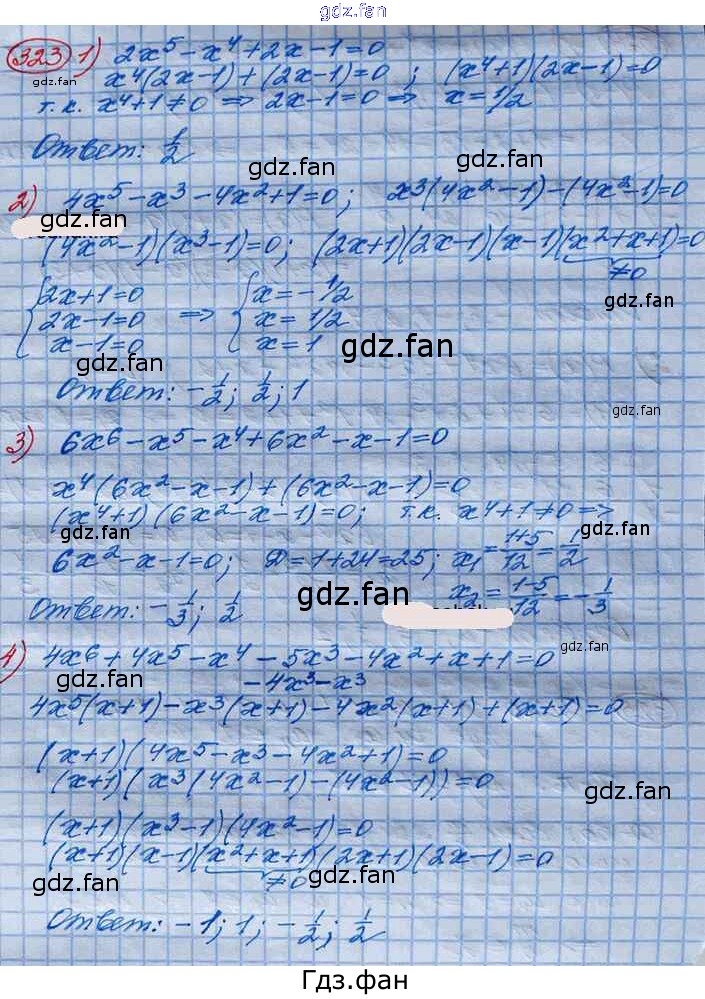 gdz.fan
323 1) 2x⁵ - x⁴ + 2x - 1 = 0
x⁴(2x-1) + (2x-1) = 0 ; (x⁴+1)(2x-1) = 0
т.к. x⁴+1 ≠ 0 ⇒ 2x-1 = 0 ⇒ x = 1/2
Ответ: 1/2
gdz.fan
2) 4x⁵ - x³ - 4x² + 1 = 0 ; x³(4x²-1) - (4x²-1) = 0
gdz.fan
gdz.fan
(4x²-1)(x³-1) = 0 ; (2x+1)(2x-1)(x-1)(x²+x+1) = 0
≠0
{ 2x+1 = 0 { x = -1/2
gdz.fan
2x-1 = 0 ⇒ x = 1/2
x-1 = 0 x = 1
gdz.fan
gdz.fan
Ответ: -1/2 ; 1/2 ; 1
gdz.fan
3) 6x⁶ - x⁵ - x⁴ + 6x² - x - 1 = 0
gdz.fan
x⁴(6x²-x-1) + (6x²-x-1) = 0
(x⁴+1)(6x²-x-1) = 0 ; т.к. x⁴+1 ≠ 0 ⇒
6x²-x-1 = 0 ; D = 1+24 = 25 ; x₁ = 1+5/12 = 1/2
gdz.fan
x₂ = 1-5/12 = -1/3
Ответ: -1/3 ; 1/2
gdz.fan
4) 4x⁶ + 4x⁵ - x⁴ - 5x³ - 4x² + x + 1 = 0
gdz.fan
gdz.fan
-4x³-x³
4x⁵(x+1) - x³(x+1) - 4x²(x+1) + (x+1) = 0
(x+1)(4x⁵ - x³ - 4x² + 1) = 0
(x+1)(x³(4x²-1) - (4x²-1)) = 0
gdz.fan
(x+1)(x³-1)(4x²-1) = 0
(x+1)(x-1)(x²+x+1)(2x+1)(2x-1) = 0
≠0
gdz.fan
gdz.fan
Ответ: -1 ; 1 ; -1/2 ; 1/2
gdz.fan
Гдз.фан